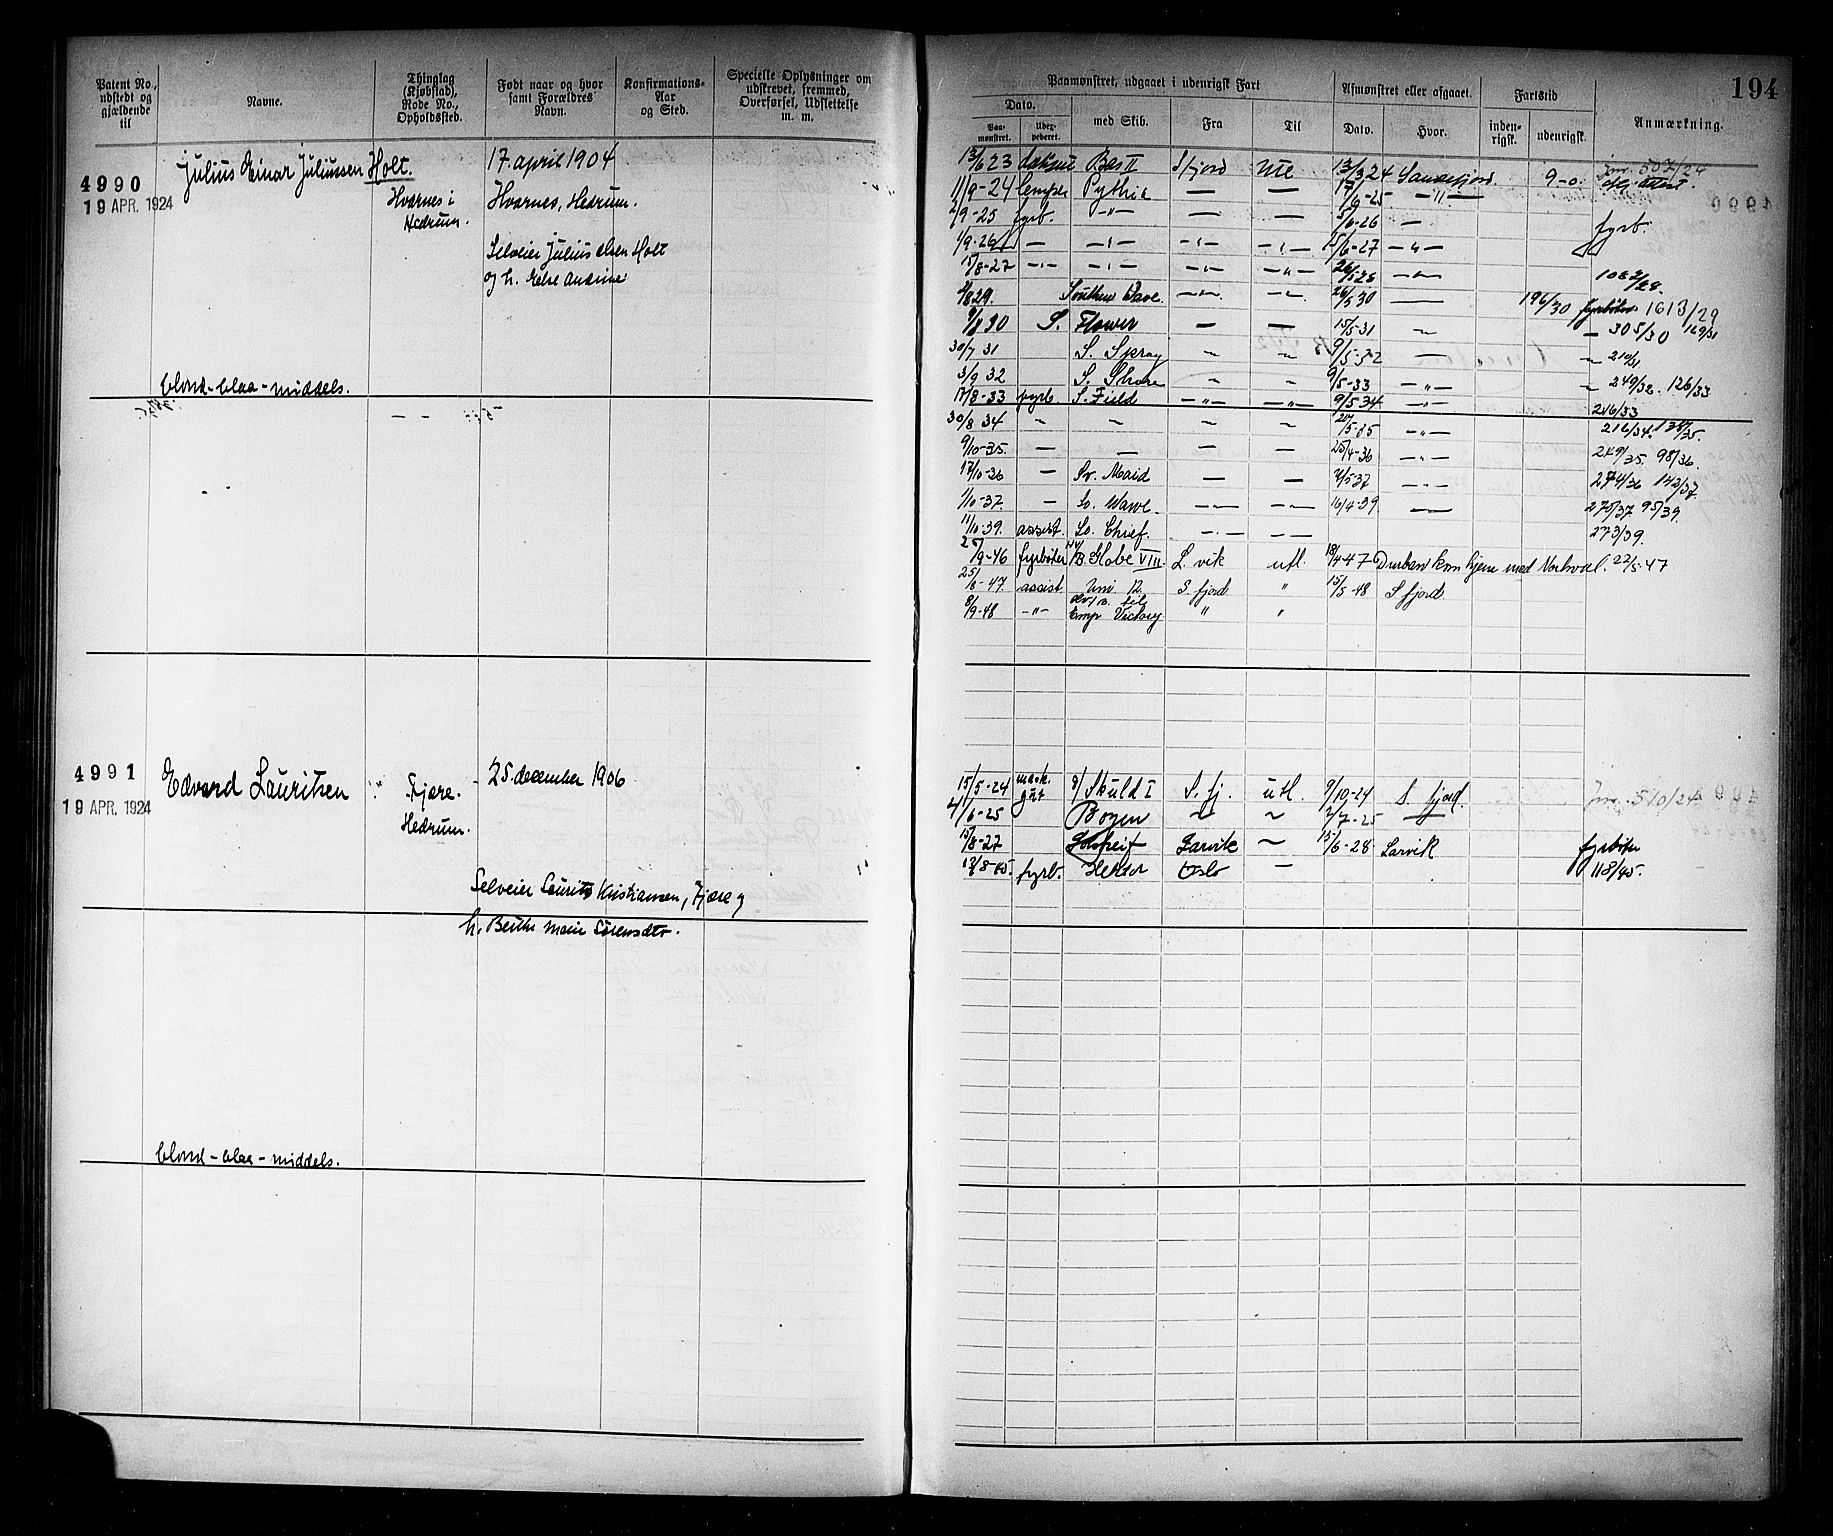 194
Patent No., udstedt og gjældende til
Navne.
Thinglag (Kjøbstad), Rode No., Opholdssted.
Født naar og hvor samt Forældres Navn.
Konfirmations-Aar og Sted.
Specielle Oplysninger om udstrevet, fremmed, Overførsel, Udslettelse m. m.
Paamønstret, udgaaet i udenrigsk Fart
Dato.
Paa-mønstret.
med Skib.
Fra
Til
Afmønstret eller afgaaet.
Dato.
Hvor.
Fartstid
inden-rigsk.
udenrigsk.
Anmærkning.
4990
19 APR. 1924
Julius Einar Juliussen Holt.
Hvarnes i
Hedrum.
17. april 1904
Hvarnes, Hedrum.
Selveier Julius Olsen Holt
og h. Else Andrine
blond - blaa - middels.
13/6 23 Bas II Sfjord Ute 13/3 24 Sandefjord 9-0 Jnr. 507/24
11/9-24 lemper Pythia — — 17/6-25 — " —
2/9-25 fyrb. — " — — — 5/6-26 — fyrb.
1/9-26 — — " — — " — — " — 15/6-27 — " —
15/8-27 — " — — " — — — " — 26/5-28 — " — 108 2/28.
4/8 29. Southern Wave — " — — " — 26/5 30 — 196/30 fyrbøter 1613/29
9/8 30 S. Flower — — 15/5-31 — — 305/30 169/31
30/7 31 S. Spray ~ ~ 9/5-32 — " 210/31
3/9 32 S. Shore ~ ~ 9/5-33 — " — " 249/32. 126/33
17/8-33 fyrb. S. Field — " — — " — 9/5 34 — " — 216/33
30/8 34 ~ ~ ~ ~ 27/5-35 — " — 216/34. 134/35.
9/10-35. — — — — 25/4-36 — " — 249/35. 98/36.
17/10-36 — So. Maid — — 4/5-37 — " — 274/36 142/37.
1/10-37. — So. Wawe. — " — — " — 16/4-39 — " — 275/37 95/39.
11/10-39. assist. So. Chief. — " — — " — 273/39.
25/9-46 fyrbøter Globe VIII L. vik utl. 18/4 47 Durban kom hjem med Norhval. 22/5-47
25/8-47. assist Uni S. fjord " 15/5-48 S fjord
8/9-48 — " — Emp Victory " "
4991
19 APR. 1924
Edvard Lauritsen
Fjære.
Hedrum.
25. december 1906
Selveier Laurits Kristiansen, Fjære og
h. Berthe Marie Sørensdtr.
blond - blaa - middels.
15/5-24 mask. gut s/ Skuld I S. fj. utl. 9/10-24 S. fjord. Jnr. 510/24
4/6-25 Bogen ~ ~ 2/7-25 —
15/8-27 Larvik ~ 15/6-28 Larvik fyrbøter
fyrb. Hektor Oslo — 118/45.